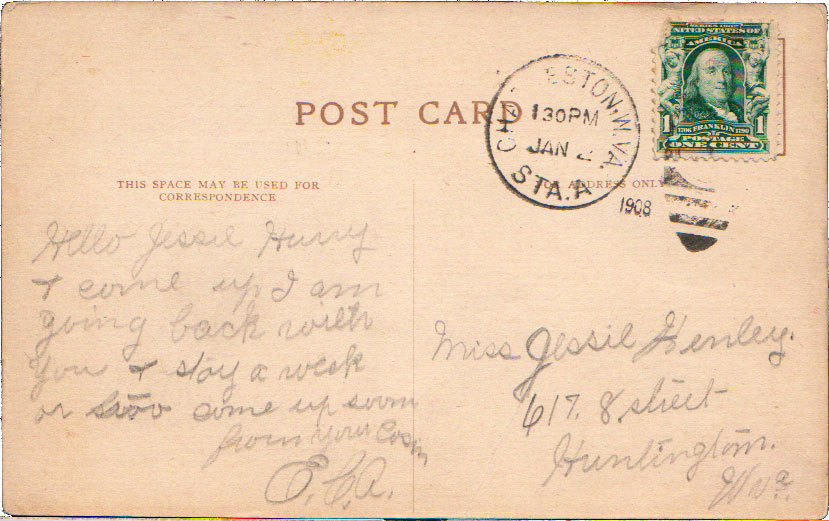 POST CARD
THIS SPACE MAY BE USED FOR
CORRESPONDENCE
Hello Jessie Hurry
& come up I am
going back with
you & stay a week
or come up soon
from your Cosin
CHA ESTON, W. VA.
130PM
JAN 2
1908
STA. A
ADDRESS ONLY
SERIES 1902
UNITED STATES OF
AMERICA
1706 FRANKLIN 1790
1 1
POSTAGE
ONE CENT
Miss Jessie Henley.
617. 8 street
Huntington.
W va.